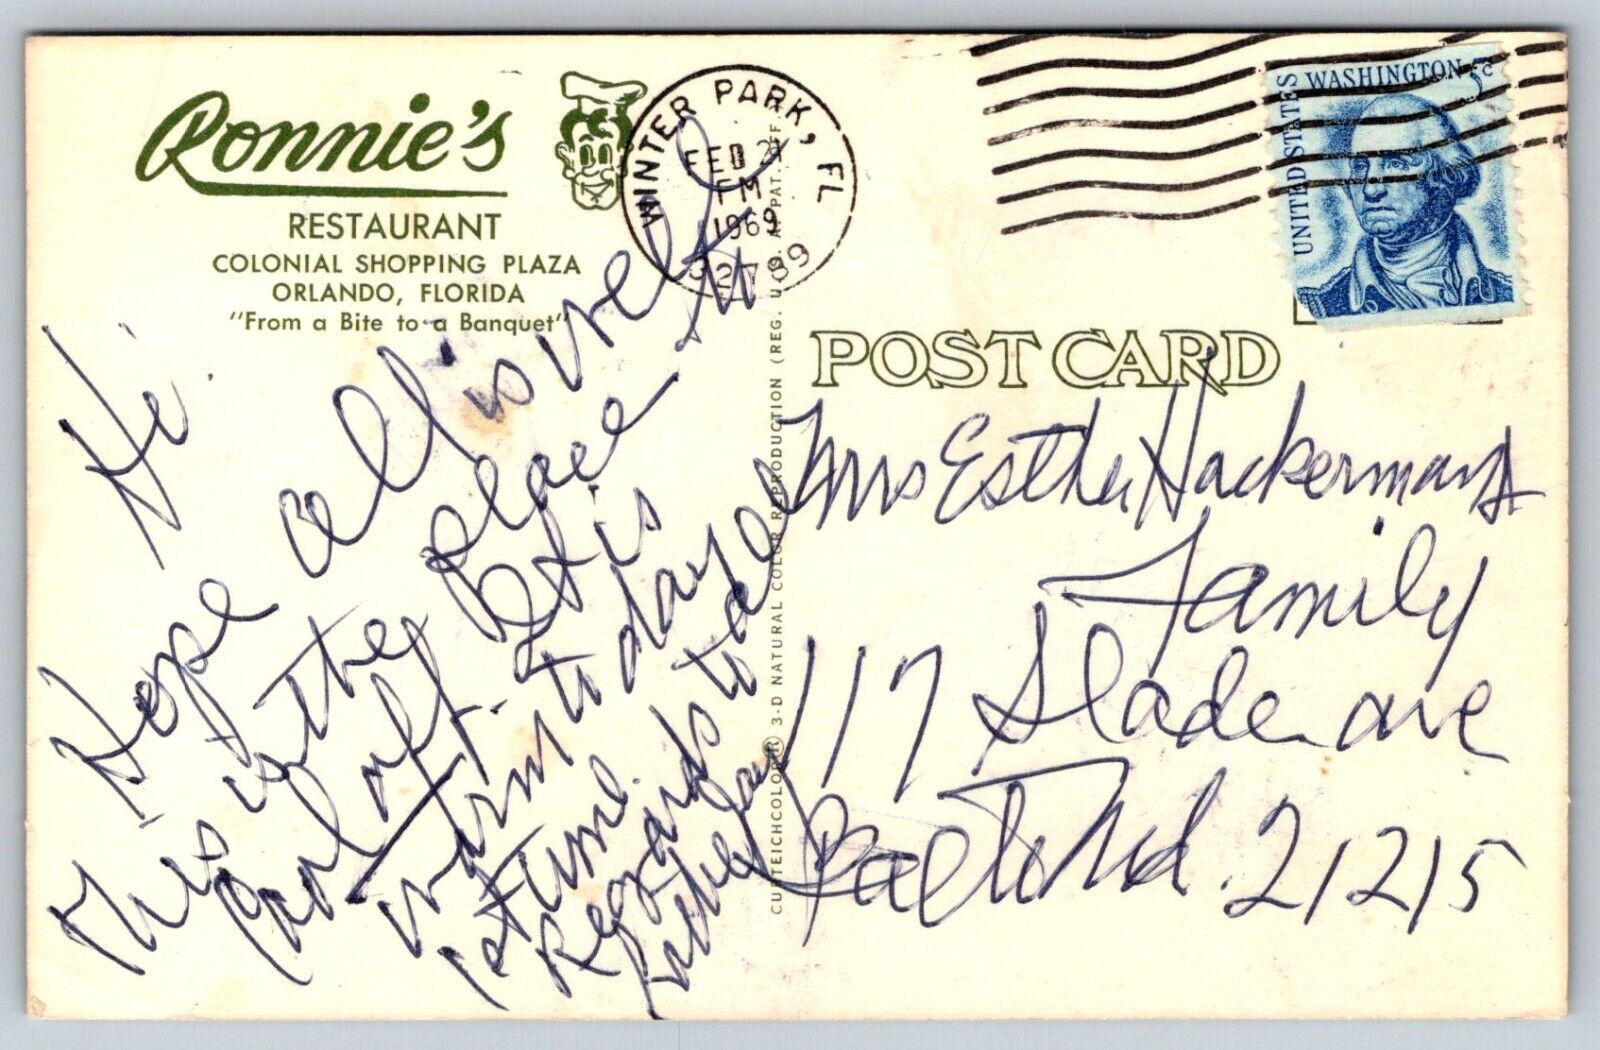 Ronnie's
RESTAURANT
COLONIAL SHOPPING PLAZA
ORLANDO, FLORIDA
"From a Bite to a Banquet"
WINTER PARK, FL
FEB 2
PM
1969
32789
UNITED STATES
WASHINGTON 5c
POST CARD
CURTEICHCOLOR® 3-D NATURAL COLOR REPRODUCTION (REG. U.S.A. PAT. OFF.
Hi.
Hope all is well
This is the place
Carl at
off. It is
warm to day
1st time.
Regards to all
Mrs Esther Hackerman &
Family
117 Slade ave
Balto Md. 21215